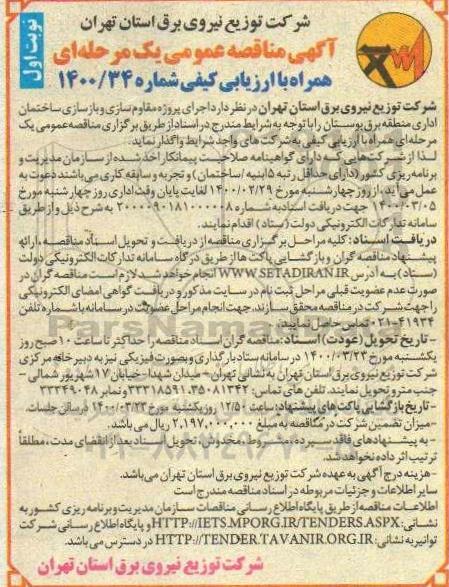 شرکت توزیع نیروی برق استان تهران
نوبت اول
آگهی مناقصه عمومی یک مرحله‌ای
همراه با ارزیابی کیفی شماره ۱۴۰۰/۳۴
شرکت توزیع نیروی برق استان تهران در نظر دارد اجرای پروژه مقاوم سازی و بازسازی ساختمان
اداری منطقه برق بوستان را با توجه به شرایط مندرج در اسناد از طریق برگزاری مناقصه عمومی یک
مرحله ای همراه با ارزیابی کیفی به شرکت های واجد شرایط واگذار نماید.
لذا از شرکت‌هایی که دارای گواهینامه صلاحیت پیمانکار اخذ شده از سازمان مدیریت و
برنامه ریزی کشور (دارای حداقل رتبه ۵ ابنیه /ساختمان) و تجربه و سابقه کاری می‌باشند دعوت به
عمل می آید، از روز چهارشنبه مورخ ۱۴۰۰/۰۲/۲۹ لغایت پایان وقت اداری روز چهارشنبه مورخ
۱۴۰۰/۰۳/۰۵ جهت دریافت اسناد به شماره ۲۰۰۰۰۹۰۱۸۱۰۰۰۰۰۸ به شرح ذیل و از طریق
سامانه تدارکات الکترونیکی دولت (ستاد) اقدام نمایند.
دریافت اسناد: کلیه مراحل برگزاری مناقصه از دریافت و تحویل اسناد مناقصه، ارائه
پیشنهاد مناقصه گران و بازگشایی پاکت ها از طریق درگاه سامانه تدارکات الکترونیکی دولت
(ستاد) به آدرس WWW.SETADIRAN.IR انجام خواهد شد لازم است مناقصه گران در
صورت عدم عضویت قبلی مراحل ثبت نام در سایت مذکور و دریافت گواهی امضای الکترونیکی
را جهت شرکت در مناقصه محقق سازند. جهت انجام مراحل عضویت در سامانه با شماره تلفن
۰۲۱-۴۱۹۳۴ تماس حاصل نمایید.
- تاریخ تحویل (عودت) اسناد: مناقصه گران اسناد مناقصه را حداکثر تا ساعت ۱۰ صبح روز
یکشنبه مورخ ۱۴۰۰/۰۳/۲۳ در سامانه ستاد بارگذاری و بصورت فیزیکی نیز به دبیرخانه مرکزی
شرکت توزیع نیروی برق استان تهران به نشانی تهران- میدان شهدا- خیابان ۱۷ شهریور شمالی -
جنب مترو تحویل نمایند. تلفن های تماس: ۳۵۰۸۱۳۴۲، ۳۳۳۱۸۵۹۱ و نمابر ۳۳۳۴۹۰۴۸
- تاریخ بازگشایی پاکت های پیشنهاد: ساعت ۱۲/۵۰ روز یکشنبه مورخ ۱۴۰۰/۰۳/۲۳ در سالن جلسات
- میزان تضمین شرکت در مناقصه به مبلغ ۲,۱۹۷,۰۰۰,۰۰۰ ریال می باشد.
- به پیشنهادهای فاقد سپرده، مشروط، مخدوش و تحویل اسناد بعد از انقضای مدت، مطلقاً
ترتیب اثر داده نخواهد شد.
- هزینه درج آگهی به عهده شرکت توزیع نیروی برق استان تهران می‌باشد.
سایر اطلاعات و جزئیات مربوطه در اسناد مناقصه مندرج است
اطلاعات مناقصه از طریق پایگاه اطلاع رسانی مناقصات سازمان مدیریت و برنامه ریزی کشور به
نشانی: HTTP://IETS.MPORG.IR/TENDERS.ASPX و پایگاه اطلاع رسانی شرکت
توانیر به نشانی: HTTP://TENDER.TAVANIR.ORG.IR در دسترس می باشد.
شرکت توزیع نیروی برق استان تهران